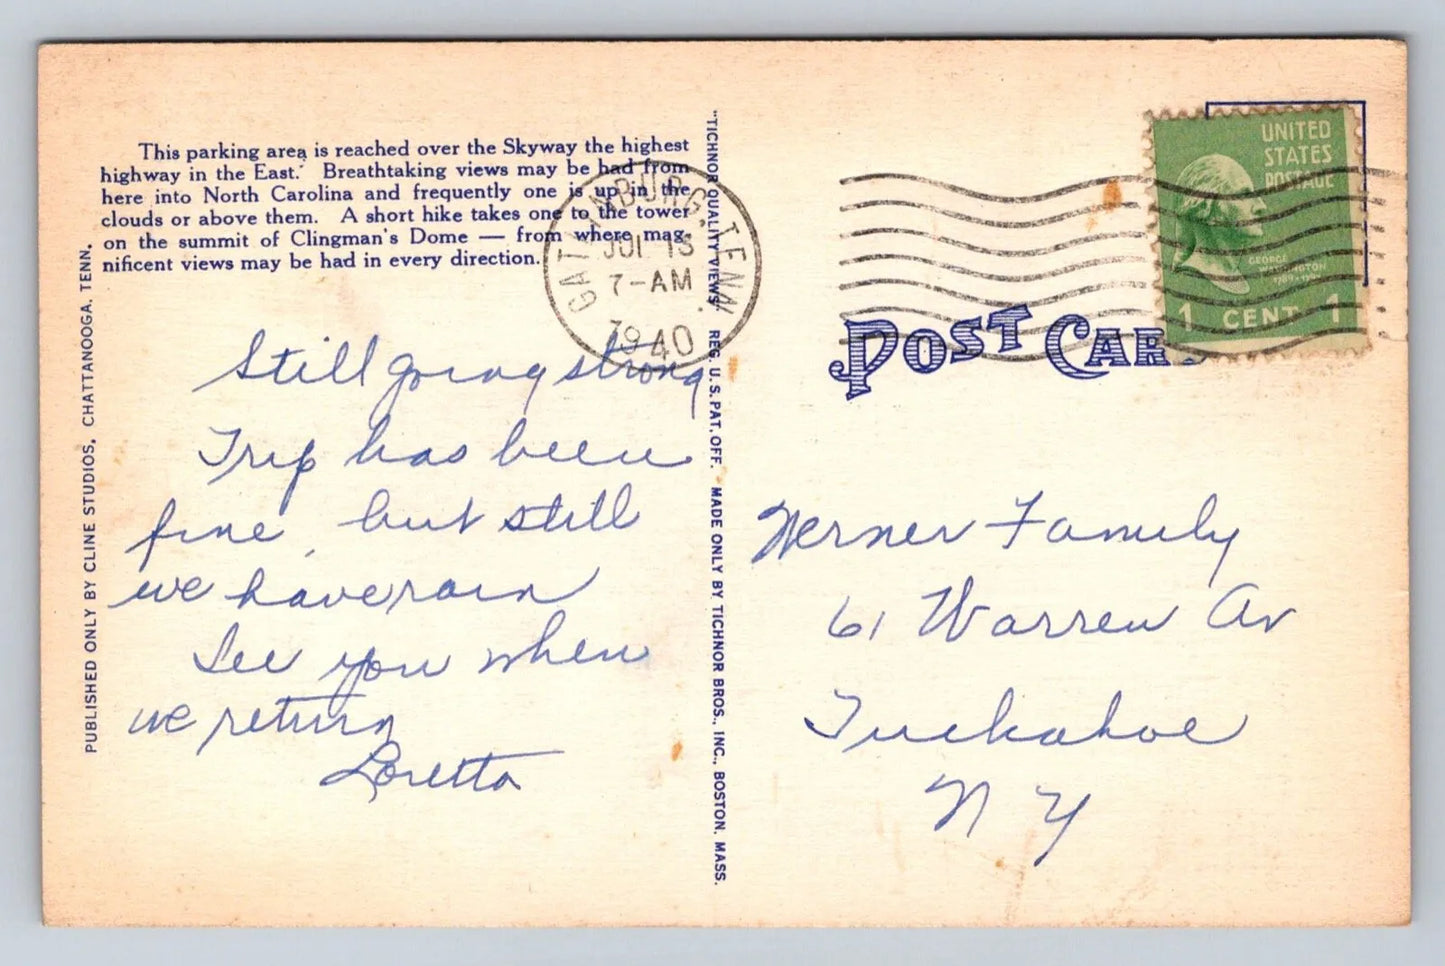 This parking area is reached over the Skyway the highest
highway in the East. Breathtaking views may be had from
here into North Carolina and frequently one is up in the
clouds or above them. A short hike takes one to the tower
on the summit of Clingman's Dome — from where mag-
nificent views may be had in every direction.
PUBLISHED ONLY BY CLINE STUDIOS, CHATTANOOGA, TENN.
Still going strong
Trip has been
fine, but still
we have rain
See you when
we return
Loretta
GATLINBURG, TENN.
JUL 15
7-AM
1940
"TICHNOR QUALITY VIEWS" REG. U. S. PAT. OFF. MADE ONLY BY TICHNOR BROS., INC., BOSTON, MASS.
UNITED
STATES
POSTAGE
GEORGE
WASHINGTON
1 CENT 1
POST CARD
Werner Family
61 Warren Av
Tuckahoe
N Y